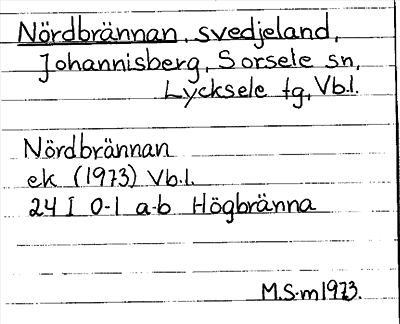 Nördbrännan, svedjeland,
Johannisberg, Sorsele sn,
Lycksele tg, Vb.l.
Nördbrännan
ek (1973) Vb.l.
24 I 0-1 a-b Högbränna
M.S-m 1973.